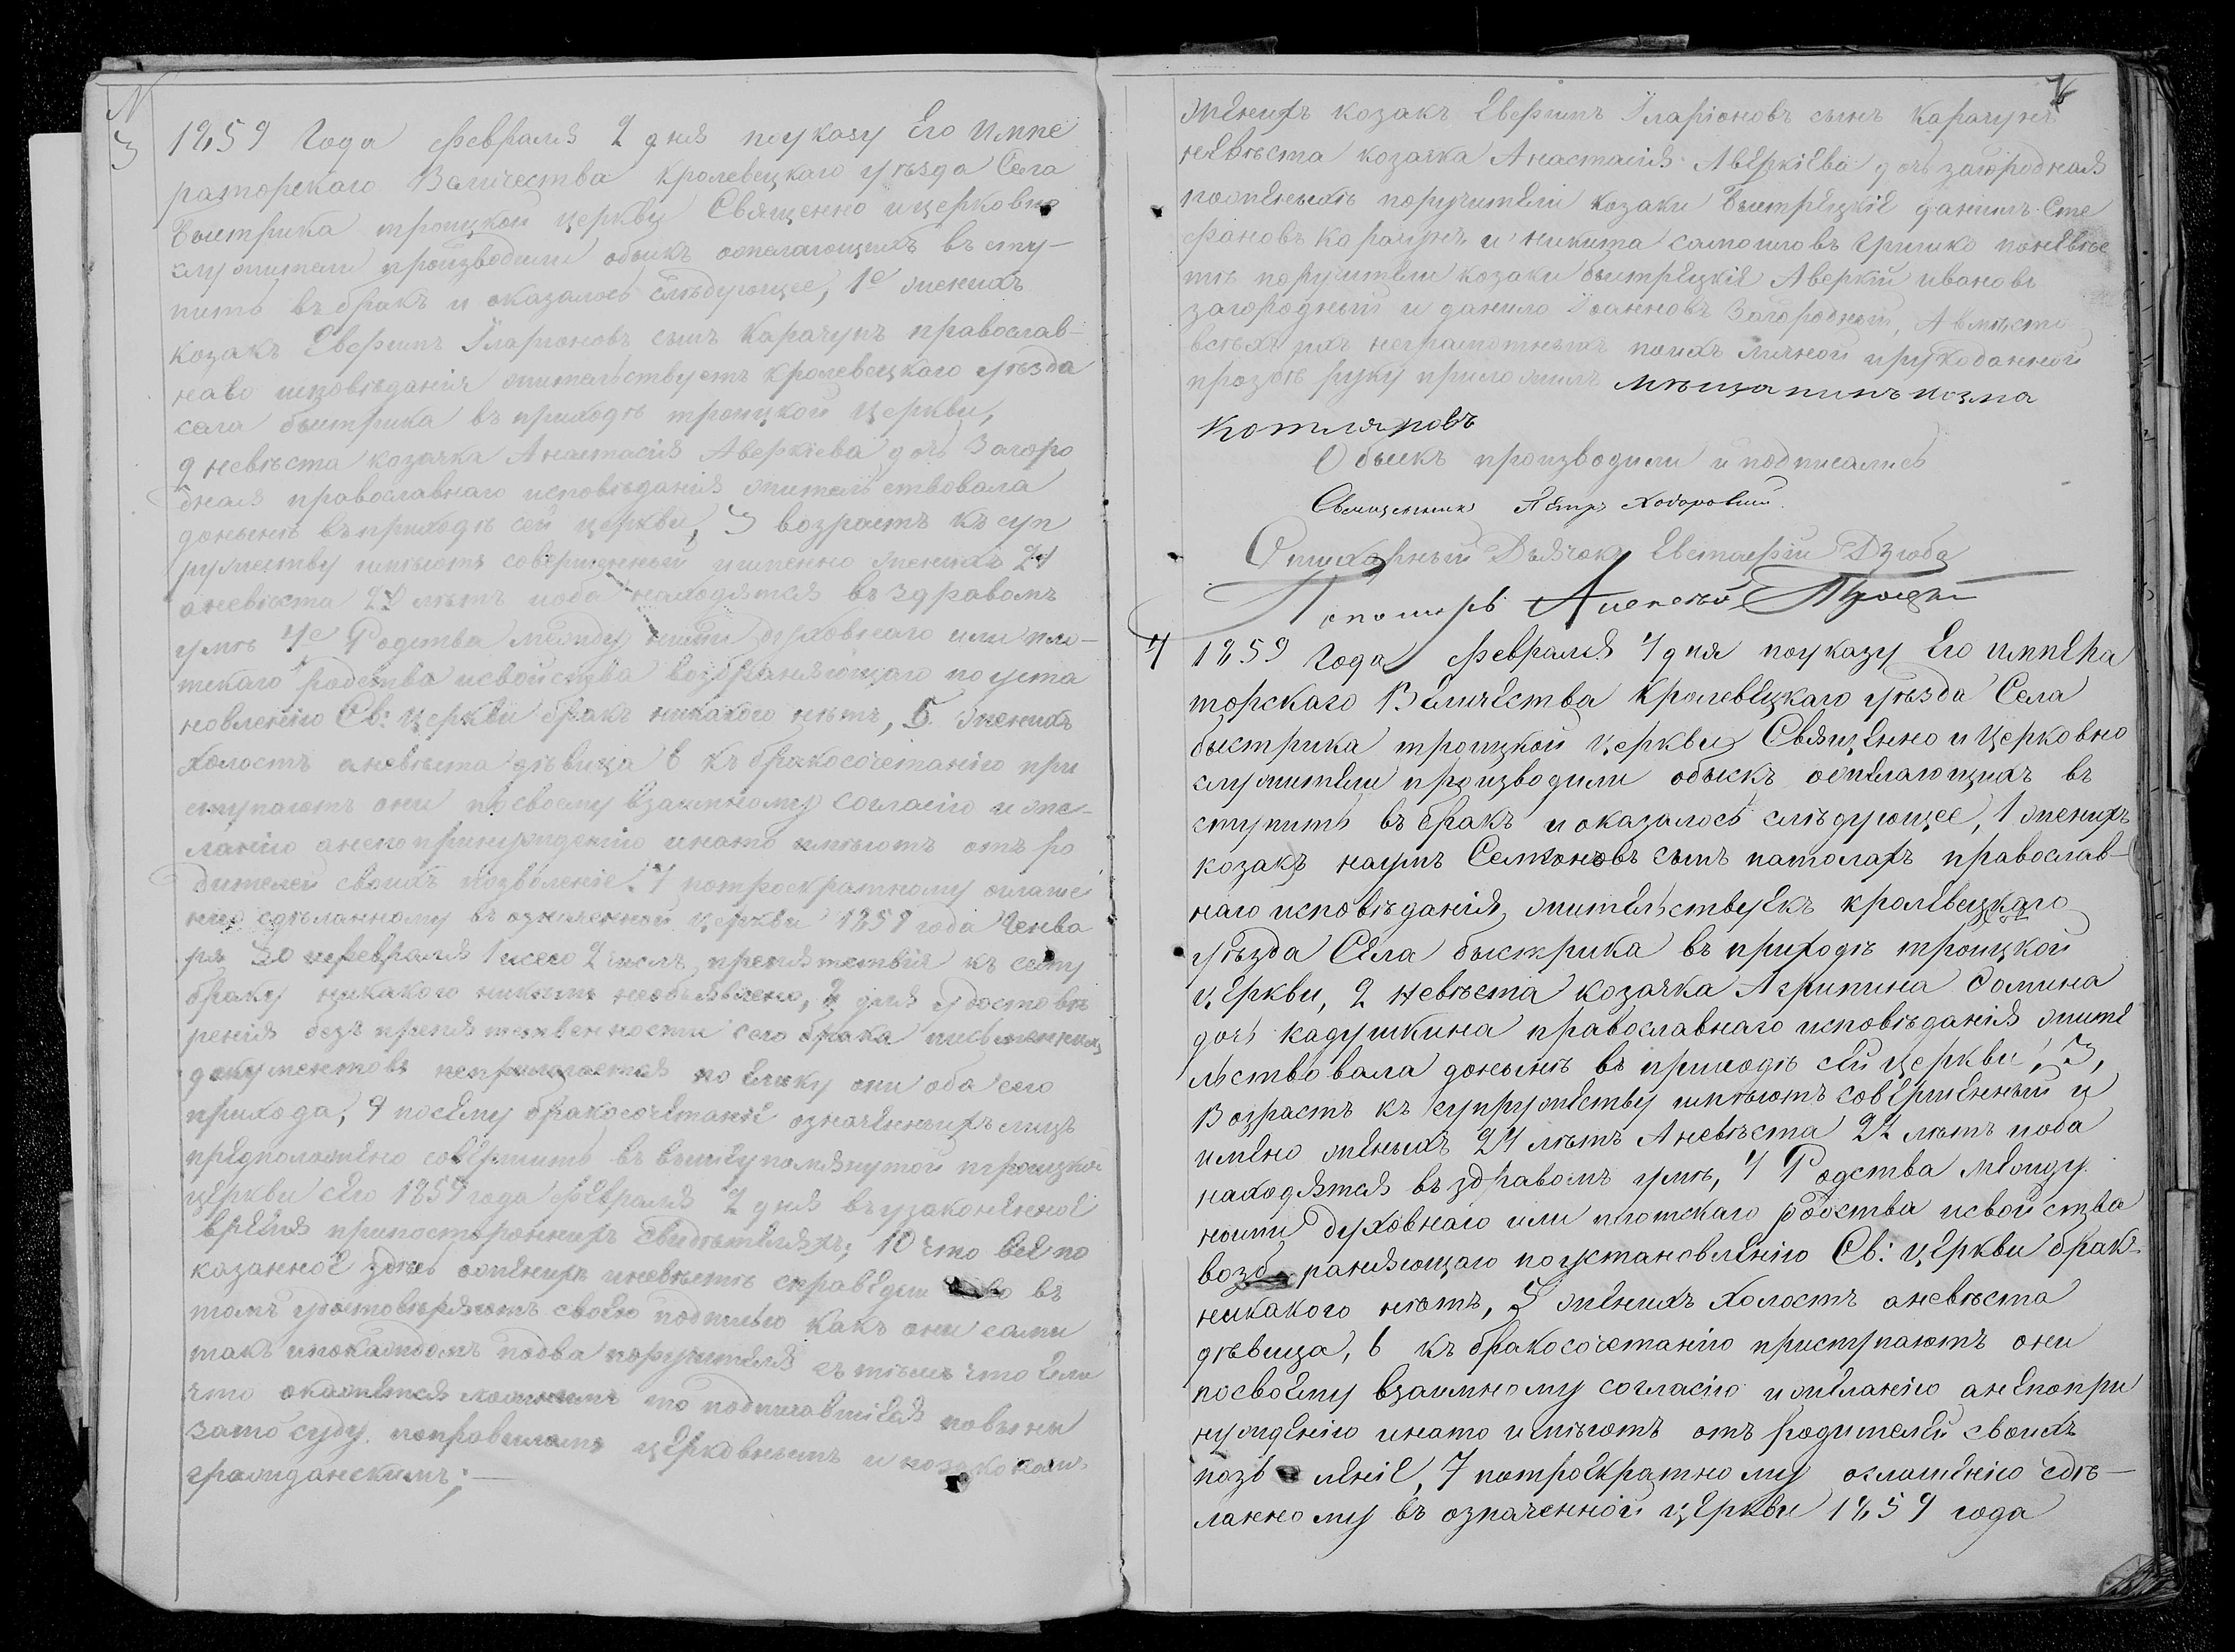 N
3
1859 Года февраля 2 дня поуказу Его Импе
раторскаго Величества кролевецкаго уѣзда Села
Быстрика троицкой церкви Священно ицерковно
служители производили обыкъ ожелающихъ всту-
пить въ бракъ и оказалось слѣдующее, 1е женихъ
козакъ Евфимъ Іларіоновъ сынъ Карачунъ православ-
наво исповѣданія жительствуетъ кролевецкаго уѣзда
села быстрика въ приходѣ троицкой церкви,
2 невѣста козачка Анастасія Аверкіева дочь Загоро
дная православнаго исповѣданія жительствовала
донынѣ въприходѣ сей церкви, 3 возрастъ къ суп
ружеству имѣютъ совершенный иименно женихъ 24
аневѣста 20 лѣтъ иоба находятся въ здравомъ
умѣ 4е Родства между ними духовнаго или пло-
тскаго родства исвойства возбраняющаго по уста
новленію Св: церкви бракъ никакого нѣтъ, 5 женихъ
холостъ аневѣста дѣвица 6 къ бракосочетанію при
ступаютъ они посвоему взаимному согласію и же-
ланію анепопринужденію инато имѣютъ отъ ро
дителей своихъ позволеніе. 7 потроекратному оглаше
нию сдѣланному въ означенной церкви 1859 года Генва
ря 30 ифевраля 1 исего 2 числъ препятствія къ сему
браку никакого никимъ необъявлено, 8 для удостовѣ
ренія безъ препятственности сего брака письменныхъ
документовъ неприлагается поелику они оба сего
прихода, 9 посему бракосочетаніе означенныхъ лицъ
предположено совершить въ вышеупомянутой троицкой
церкви сего 1859 года февраля 2 дня въузаконенное
время припостороннихъ свидѣтеляхъ; 10 что все по
казанное здѣсь оженихѣ иневѣстѣ справедли во въ
томъ удостовѣряютъ своею подписью какъ они сами
такъ ипокаждомъ подва поручителя съ тѣмъ что если
что окажется ложнымъ то подписавшіеся повинны
зато суду поправиламъ церковнымъ и позаконамъ
гражданскимъ;
женихъ козакъ Евфимъ Іларіоновъ сынъ Карачунъ
невѣста козачка Анастасія Аверкіева дочь загородная
поженихѣ поручители козаки Быстрецкіе данилъ Сте
фановъ Карачунъ и никита самоиловъ Гришко поневѣс
тѣ поручители козаки быстрецкіе Аверкій ивановъ
загородный и данило Іоанновъ Загородный, Авмѣсто
всѣхъ ихъ неграмотныхъ поихъ личной ирукоданной
прозбѣ руку приложилъ мѣщанинъ козма
Котляровъ
Обыскъ производили и подписались
Священникъ Петръ Ходоровскій
Стихарный Дьячокъ Евстафій Дзюба
Пономарь Алексѣй Троцкій
4
1859 Года февраля 4 дня поуказу Его импера
торскаго Величества кролевецкаго уѣзда Села
быстрика троицкой церкви Священно и Церковно
служители производили обыскъ ожелающихъ въ
ступить въ бракъ и оказалось слѣдующее, 1 женихъ
козакъ наумъ Семioновъ сынъ патолахъ православ-
наго исповѣданія, жительствуекъ кролевецкаго
уѣзда Села быстрика въ приходѣ троицкой
церкви, 2 невѣста козачка Агрипина Фомина
дочь кадушкина православнаго исповѣданія жите
льствовала донынѣ въ приходѣ сей церкви, 3,
Возрастъ къ супружеству имѣютъ совершенный и
имено женихъ 24 лѣтъ Аневѣста 22 лѣтъ иоба
находятся въ здравомъ умѣ, 4 Родства между
ними духовнаго или плотскаго родства исвойства
возб раняющаго поустановленію Св: церкви бракъ
никакого нѣтъ, 5 женихъ холостъ аневѣста
дѣвица, 6 къ бракосочетанію приступаютъ они
посвоему взаимному согласію ижеланію анепопри
нужденію инато имѣютъ отъ родителей своихъ
позв леніе, 7 потроекратному оглашенію сдѣ-
ланному въ означенной церкви 1859 года